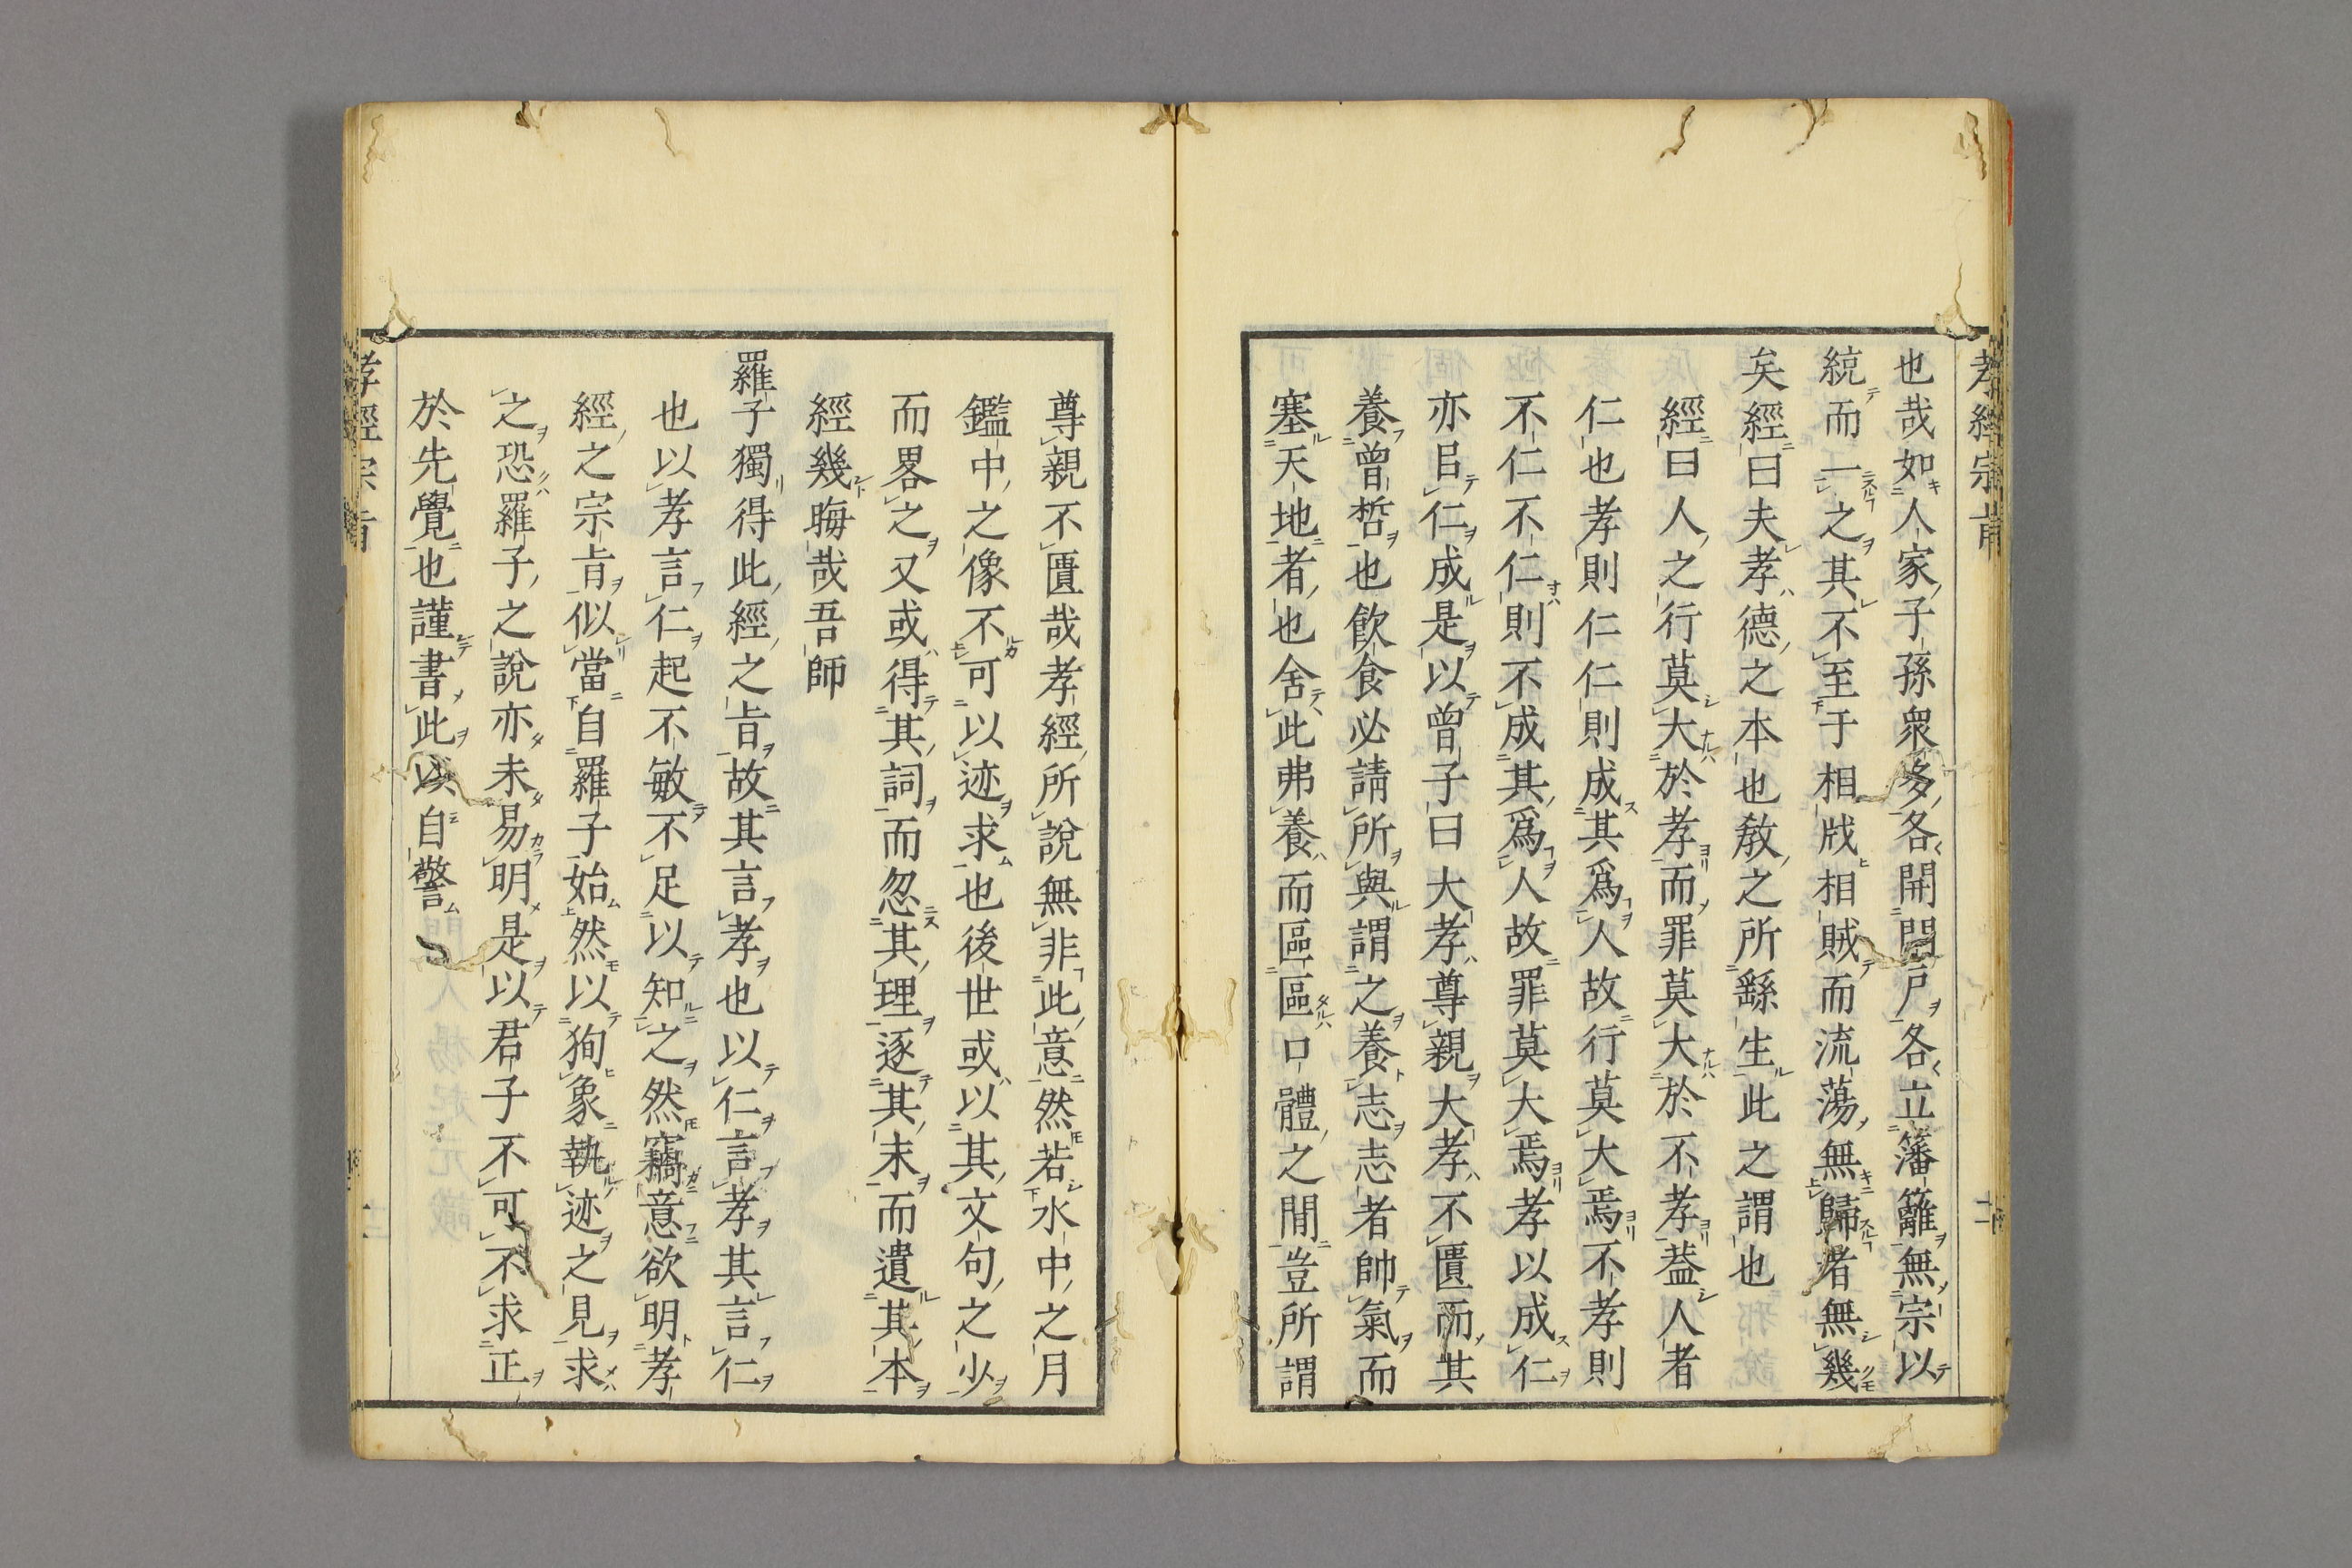 孝經宗旨
也哉如人家子孫衆多各開門戸各立藩籬無宗以
統而一之其不至于相戕相賊而流蕩無歸者無幾
矣經曰夫孝德之本也教之所繇生此之謂也
經曰人之行莫大於孝而罪莫大於不孝葢人者
仁也孝則仁仁則成其爲人故行莫大焉不孝則
不仁不仁則不成其爲人故罪莫大焉孝以成仁
亦㠯仁成是以曾子曰大孝尊親大孝不匱而其
養曾晳也飲食必請所與謂之養志志者帥氣而
塞天地者也舍此弗養而區區口體之閒豈所謂
尊親不匱哉孝經所說無非此意然若水中之月
鑑中之像不可以迹求也後世或以其文句之少
而畧之又或得其詞而忽其理逐其末而遺其本
經幾晦哉吾師
羅子獨得此經之旨故其言孝也以仁言孝其言仁
也以孝言仁起不敏不足以知之然竊意欲明孝
經之宗旨似當自羅子始然以狥象執迹之見求
之恐羅子之說亦未易明是以君子不可不求正
於先覺也謹書此以自警
孝經宗旨